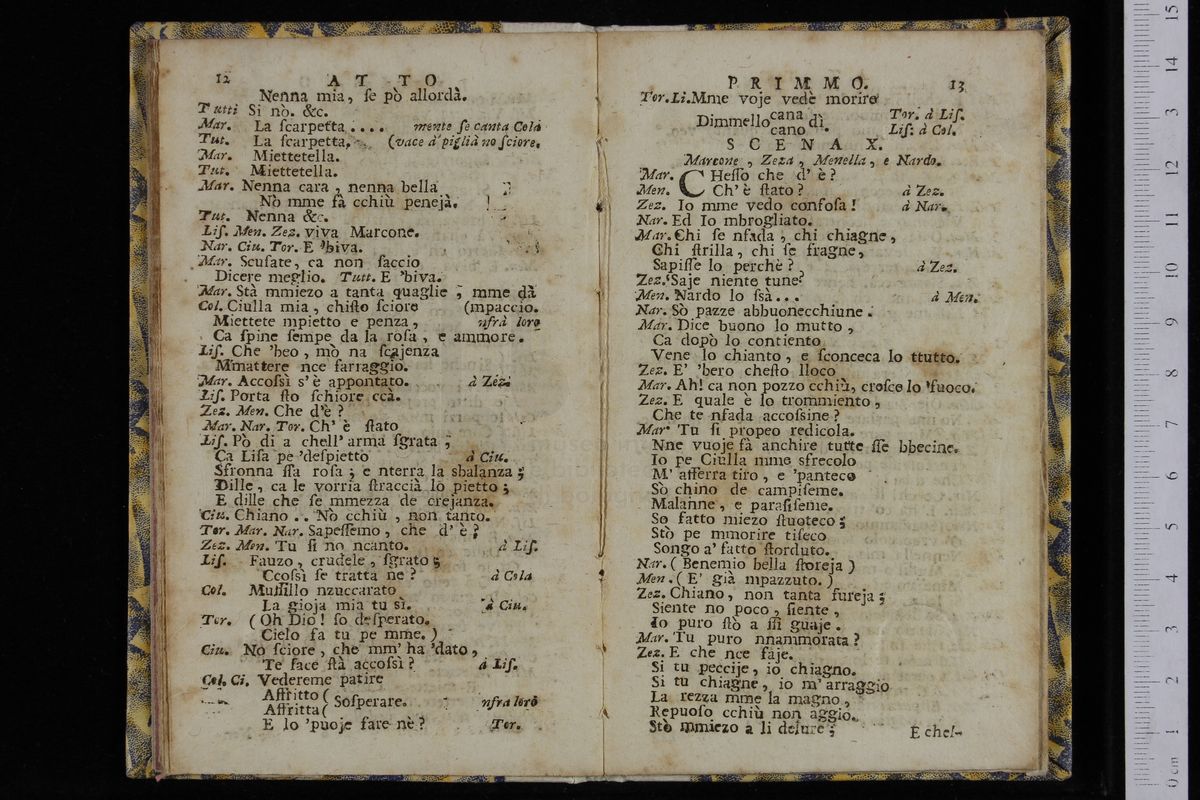 12 ATTO
Nenna mia, ſe pò allordà.
Tutti Si nò. &c.
Mar. La ſcarpetta .... mente ſe canta Cola
Tut. La ſcarpetta. (vace a piglià no ſciore.
Mar. Miettetella.
Tut. Miettetella.
Mar. Nenna cara, nenna bella
Nò mme fà cchiù penejà.
Tut. Nenna &c.
Liſ. Men. Zez. viva Marcone.
Nar. Ciu. Tor. E 'biva.
Mar. Scuſate, ca non ſaccio
Dicere meglio. Tutt. E 'biva.
Mar. Stà mmiezo a tanta quaglie, mme dà
Col. Ciulla mia, chiſto ſciore (mpaccio.
Miettete mpietto e penza, nfrà loro
Ca ſpine ſempe da la roſa, e ammore.
Liſ. Che 'beo, mò na ſcajenza
M'mattere nce farraggio.
Mar. Accoſsì s'è appontato. à Zez.
Liſ. Porta ſto ſchiore ccà.
Zez. Men. Che d'è?
Mar. Nar. Tor. Ch' è ſtato
Liſ. Pò di a chell' arma ſgrata,
Ca Liſa pe 'deſpietto à Ciu.
Sfronna ſſa roſa; e nterra la sbalanza;
Dille, ca le vorria ſtraccià lo pietto;
E dille che ſe mmezza de crejanza.
Ciu. Chiano .. Nò cchiù, non tanto.
Tor. Mar. Nar. Sapeſſemo, che d'è?
Zez. Men. Tu ſi no ncanto. à Liſ.
Liſ. Fauzo, crudele, ſgrato;
Ccoſsì ſe tratta ne? à Cola
Col. Muſſillo nzuccarato
La gioja mia tu sì. à Ciu.
Tor. (Oh Dio! ſo deſperato.
Cielo fa tu pe mme.)
Ciu. No ſciore, che mm' ha 'dato,
Te face ſtà accoſsì? à Liſ.
Col. Ci. Vedereme patire
Affritto (
Affritta ( Soſperare. nfra loro
E lo 'puoje fare nè? Tor.
PRIMMO. 13
Tor. Li. Mme voje vedè morire
Dimmello cana dì Tor. à Liſ.
cano Liſ. à Col.
SCENA X.
Marcone, Zeza, Menella, e Nardo.
Mar. CHeſſo che d' è?
Men. Ch' è ſtato? à Zez.
Zez. Io mme vedo confoſa! à Nar.
Nar. Ed Io mbrogliato.
Mar. Chi ſe nfada, chi chiagne,
Chi ſtrilla, chi ſe fragne,
Sapiſſe lo perchè? à Zez.
Zez. Saje niente tune?
Men. Nardo lo ſsà... à Men.
Nar. Sò pazze abbuonecchiune.
Mar. Dice buono lo mutto,
Ca dopò lo contiento
Vene lo chianto, e ſconceca lo ttutto.
Zez. E' 'bero cheſto lloco
Mar. Ah! ca non pozzo cchiù, creſce lo 'fuoco.
Zez. E quale è lo trommiento,
Che te nfada accoſsine?
Mar. Tu ſi propeo redicola.
Nne vuoje fà anchire tutte ſſe bbecine.
Io pe Ciulla mme sfrecolo
M' afferra tiro, e 'panteco
Sò chino de campiſeme.
Malanne, e paraſiſeme.
So fatto miezo ſtuoteco;
Stò pe mmorire tiſeco
Songo a' fatto ſtorduto.
Nar. (Benemio bella ſtoreja)
Men. (E' già mpazzuto.)
Zez. Chiano, non tanta fureja;
Siente no poco, ſiente,
Io puro ſtò a ſſi guaje.
Mar. Tu puro nnammorata?
Zez. E che nce faje.
Si tu peccije, io chiagno.
Si tu chiagne, io m' arraggio
La rezza mme la magno,
Repuoſo cchiù non aggio.
Stò mmiezo a li delure;
E chel-